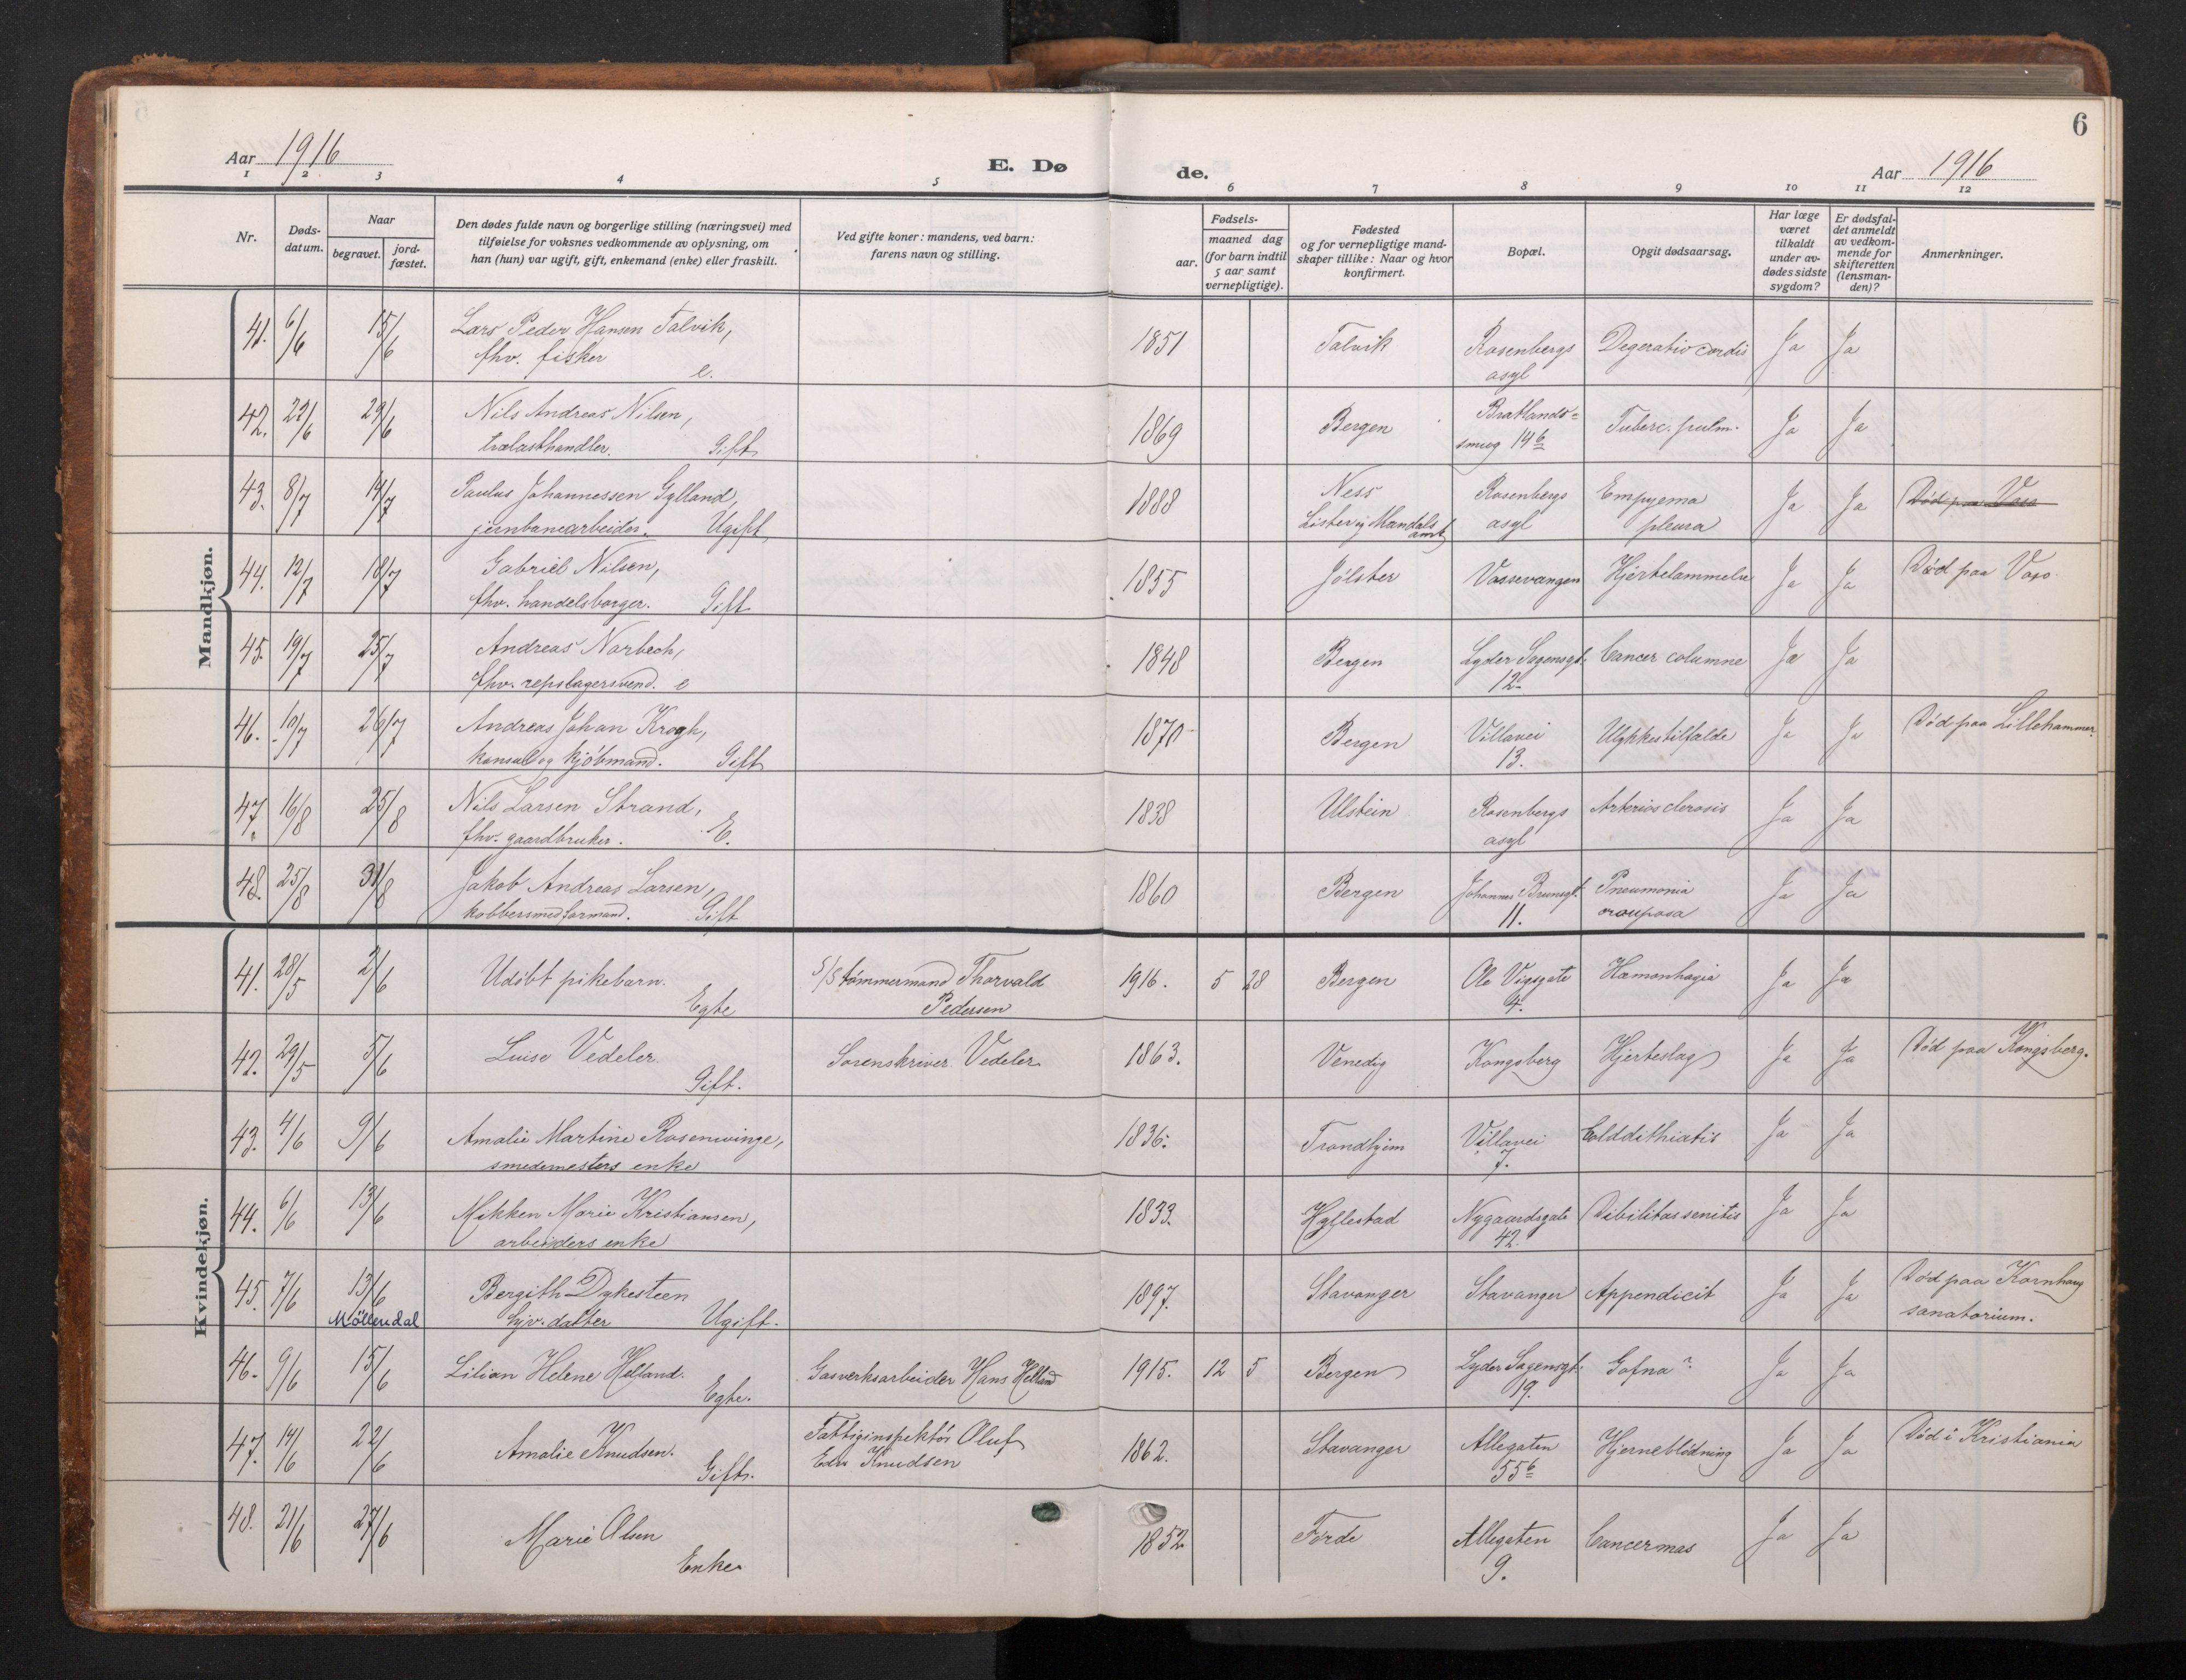 6
Aar 1916
E. Dø
de.
Aar 1916
1 2 3 4 5 6 7 8 9 10 11 12
Nr.
Døds-
datum.
Naar
begravet.
jord-
fæstet.
Den dødes fulde navn og borgerlige stilling (næringsvei) med
tilføielse for voksnes vedkommende av oplysning, om
han (hun) var ugift, gift, enkemand (enke) eller fraskilt.
Ved gifte koner: mandens, ved barn:
farens navn og stilling.
Fødsels-
aar.
maaned dag
(for barn indtil
5 aar samt
vernepligtige).
Fødested
og for vernepligtige mand-
skaper tillike: Naar og hvor
konfirmert.
Bopæl.
Opgit dødsaarsag.
Har læge
været
tilkaldt
under av-
dødes sidste
sygdom?
Er dødsfal-
det anmeldt
av vedkom-
mende for
skifteretten
(lensman-
den)?
Anmerkninger.
Mandkjøn.
41. 6/6 15/6 Lars Peder Hansen Talvik, 1851 Talvik Rosenbergs Degeratio cordis Ja Ja
fhv. fisker e. asyl
42. 22/6 29/6 Nils Andreas Nilsen, 1869 Bergen Bratlands- Tuberc. pulm. Ja Ja
trælasthandler. Gift smug 14 b
43. 8/7 14/7 Paulus Johannessen Gylland, 1888 Ness Rosenbergs Empyema Ja Ja Död paa Voss
jernbanearbeider. Ugift Lister og Mandals amt asyl pleura
44. 12/7 18/7 Gabriel Nilsen, 1855 Jölster Vossevangen Hjertelammelse Ja Ja Död paa Voss.
fhv. handelsborger. Gift
45. 19/7 25/7 Andreas Norbech, 1848 Bergen Lyder Sagensgt. Cancer columne Ja Ja
fhv. repslagersvend. e 12
46. 10/7 26/7 Andreas Johan Krogh, 1870 Bergen Villavei Ulykkestilfælde Ja Ja Död paa Lillehammer.
konsul og kjöbmand. Gift 13.
47. 16/8 25/8 Nils Larsen Strand, 1838 Ulstein Rosenbergs Arteriosclerosis Ja Ja
fhv. gaardbruker. E. asyl
48. 25/8 31/8 Jakob Andreas Larsen, 1860 Bergen Johannes Brunsgt. Pneumonia Ja Ja
kobbersmedformand. Gift 11. crouposa
Kvindekjøn.
41. 28/5 2/6 Udöbt pikebarn. S/S tømmermand Thorvald 1916. 5 28 Bergen Ole Vigsgate Hæmorrhagia Ja Ja
Egte Pedersen 4.
42. 29/5 5/6 Luise Vedeler. Sorenskriver Vedeler 1863. Venedig Kongsberg Hjerteslag Ja Ja Död paa Kongsberg.
Gift.
43. 4/6 9/6 Amalie Martine Rosenvinge, 1836. Trondhjem Villavei Ja Ja
smedemesters enke 7.
44. 6/6 13/6 Mikken Marie Kristiansen, 1833. Hyllestad Nygaardsgate Dibilitas senitis Ja Ja
arbeiders enke 42.
45. 7/6 13/6 Bergith Dykesteen 1897. Stavanger Stavanger Appendicit Ja Ja Död paa Kornhaug
Möllendal hjv. datter Ugift. sanatorium.
46. 9/6 15/6 Lilian Helene Helland. Gasverksarbeider Hans Helland 1915. 12 5 Bergen Lyder Sagensgt. Ja Ja
Egte. 19.
47. 14/6 22/6 Amalie Knudsen. Fattiginspektör Oluf 1862. Stavanger Allegaten Hjerneblödning Ja Ja Död i Kristiania
Gift. Edv Knudsen 55 b
48. 21/6 27/6 Marie Olsen 1852 Förde Allegaten Cancer mas Ja Ja
Enke 9.